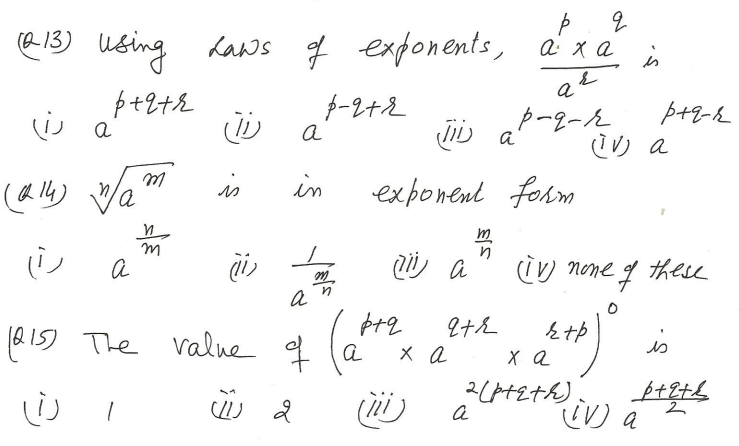 (Q13) Using Laws of exponents, (a^p x a^q)/a^r is
(i) a^(p+q+r) (ii) a^(p-q+r) (iii) a^(p-q-r) (iv) a^(p+q-r)
(Q14) ⁿ√(a^m) is in exponent form
(i) a^(n/m) (ii) 1/a^(m/n) (iii) a^(m/n) (iv) none of these
(Q15) The value of (a^(p+q) x a^(q+r) x a^(r+p))^0 is
(i) 1 (ii) 2 (iii) a^(2(p+q+r)) (iv) a^((p+q+r)/2)